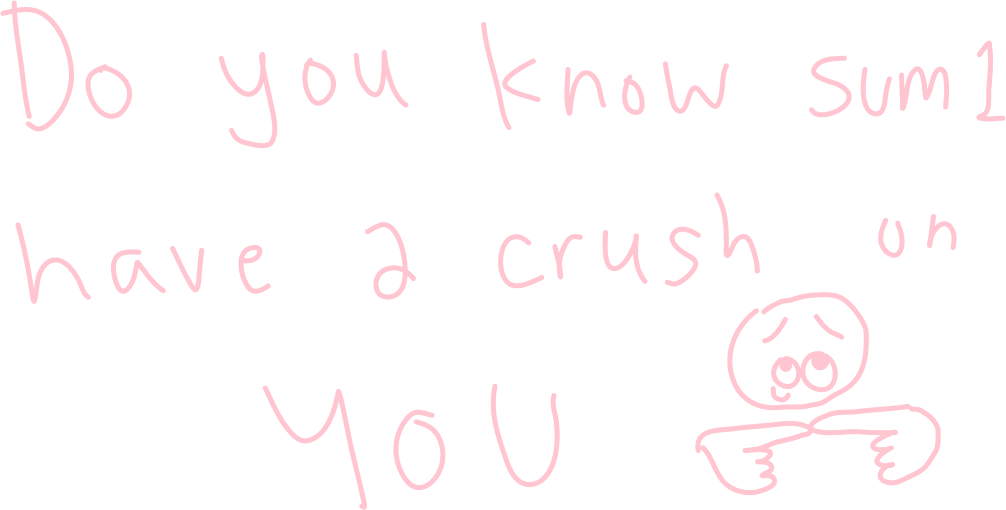 Do you know sum1
have a crush on
YOU